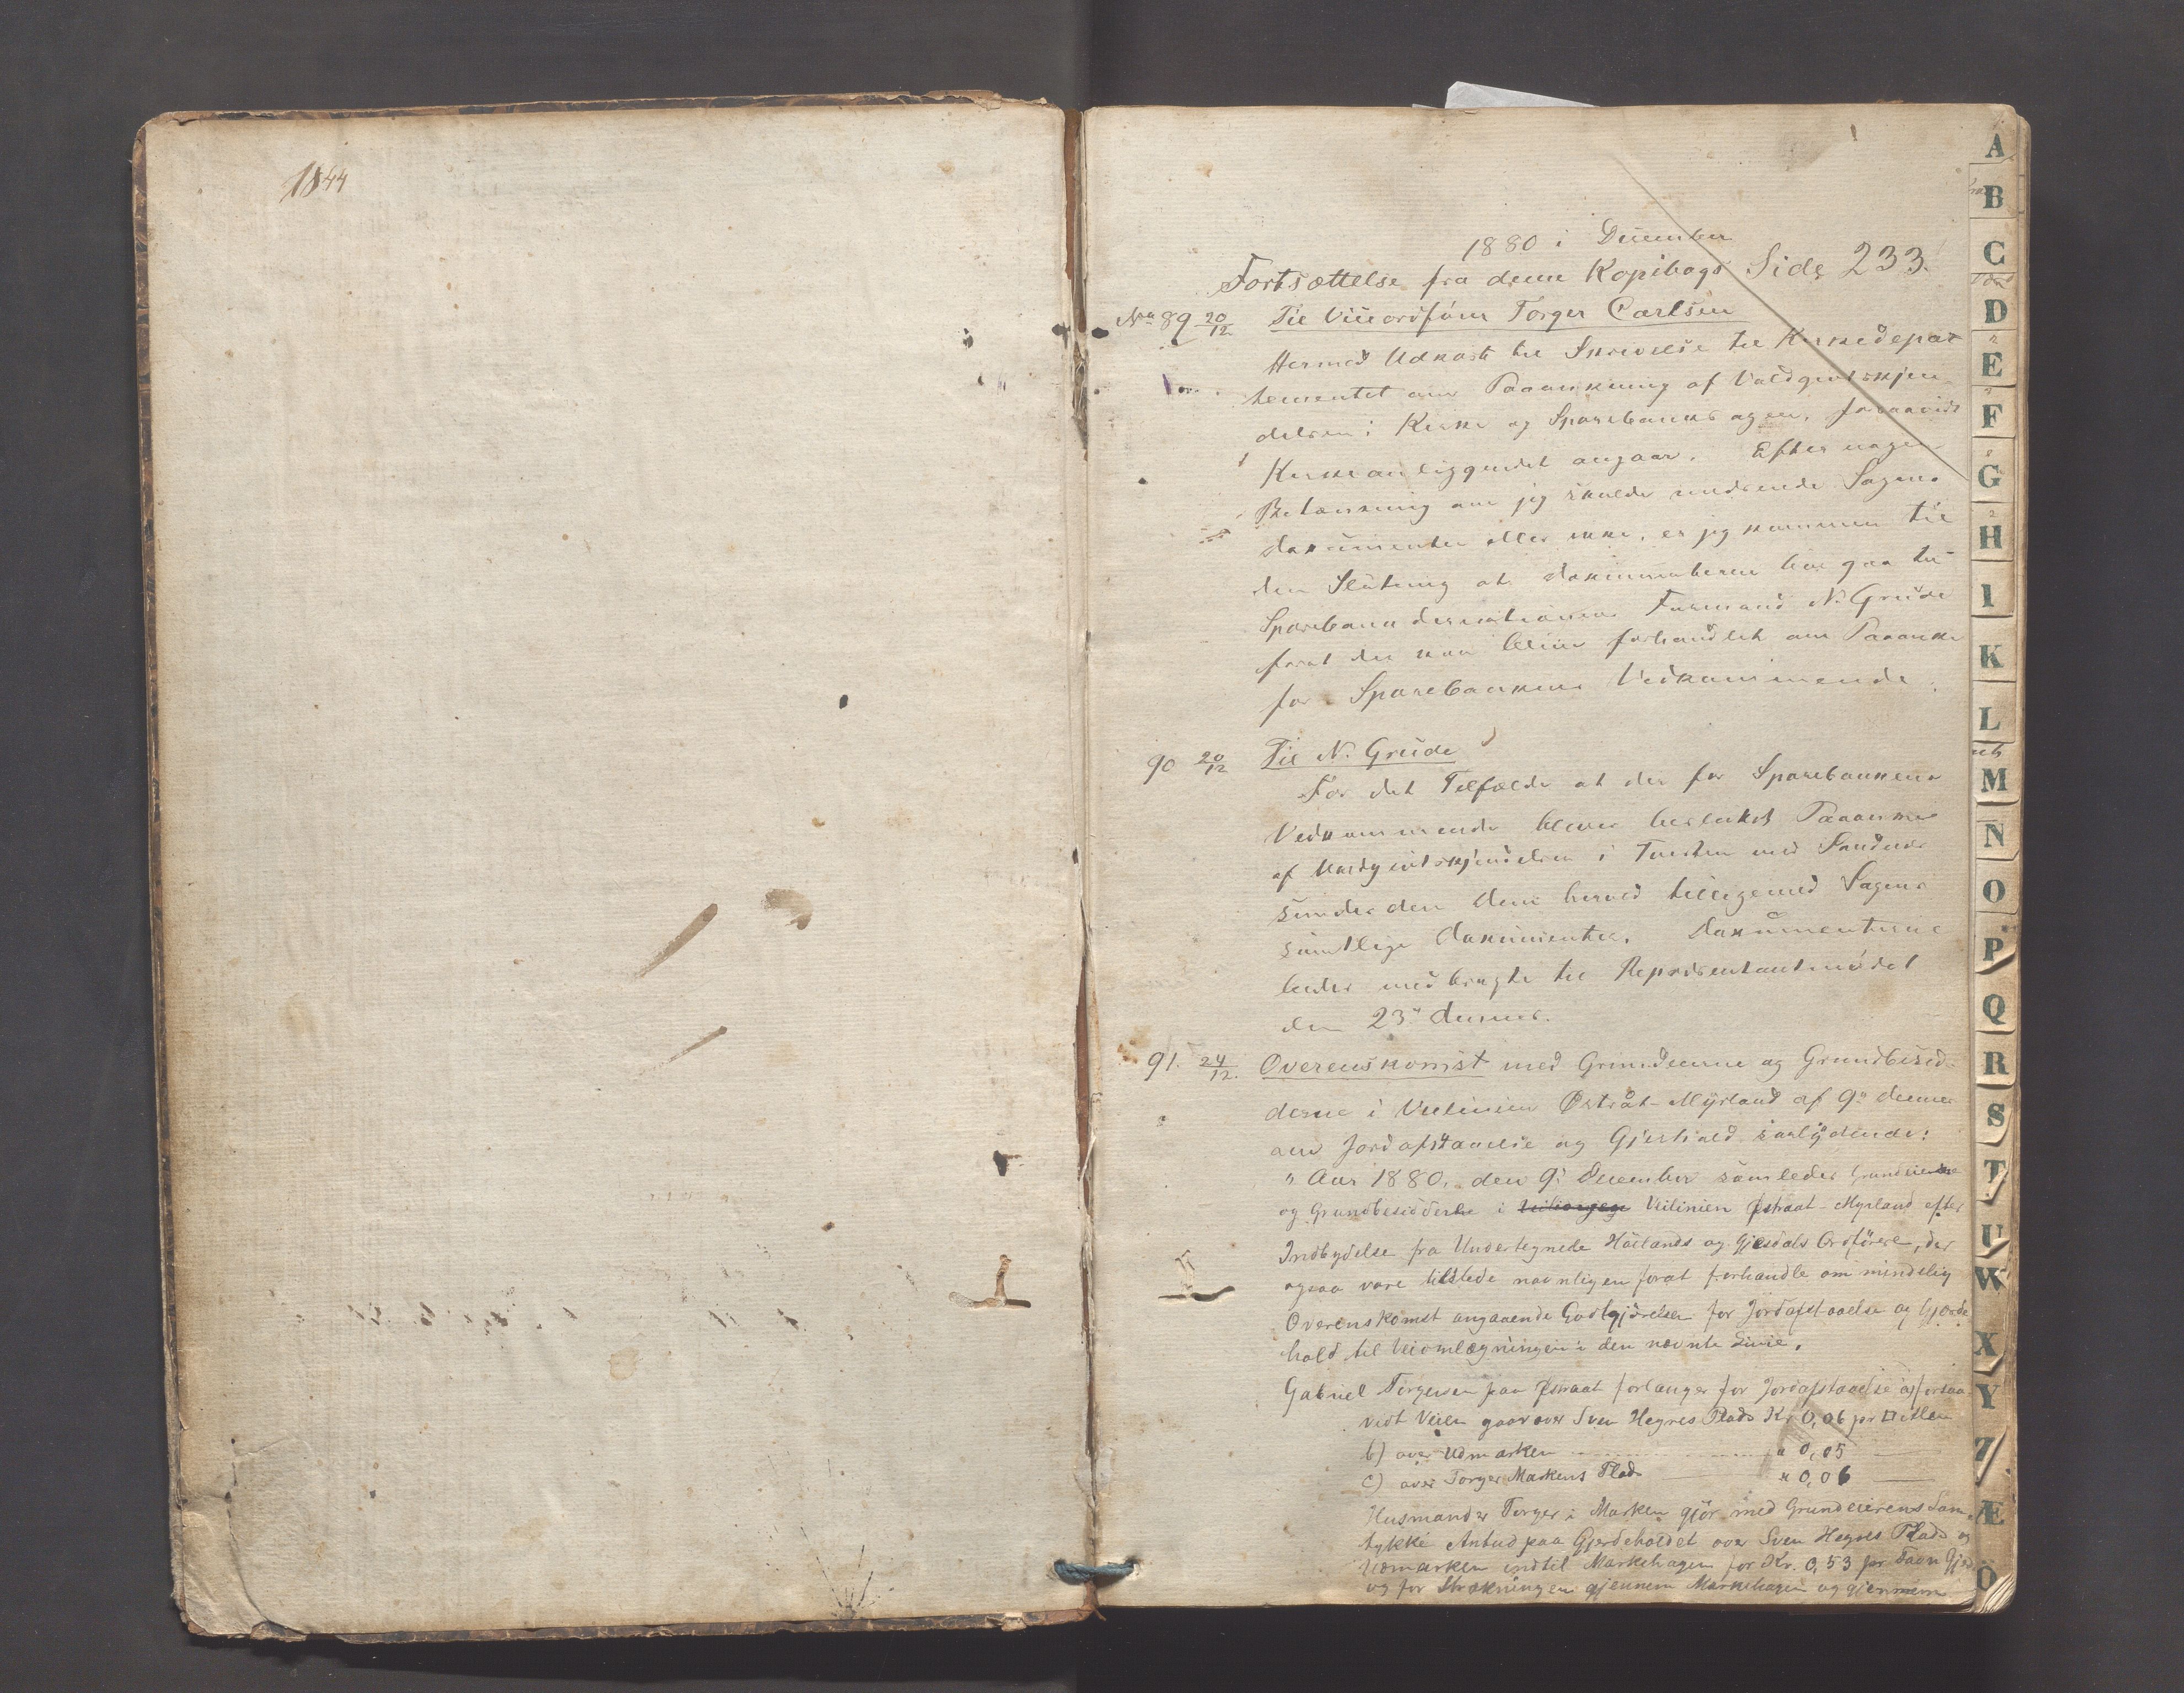 1844
1880 i December
Fortsættelse fra denne Kopibogs Side 233.
No 89 20/12 Til Viceordfører Torger Carlsen
Hermed Udkast til Skrivelse til Kirkedepar
tementet om Paaankning af Voldgivtskjen-
delsen i Kirke og Sparebanksagen, forsaavidt
Kirkeanliggendet angaar. Efter nogen
Betænkning om jeg skulde medsende Sagens
dokumenter eller ikke, er jeg kommen til
den Slutning at dokumenterne bør gaa til
Sparebankdirektionens Formand N. Grude
forat der kan blive forhandlet om Paaanke
for Sparebankens Vedkommende.
90 20/12 Til N. Grude
For det Tilfælde at der for Sparebankens
Vedkommende bliver besluttet Paaanke
af Voldgivtskjendelsen i Tvisten med Sandnes
sendes den Dem herved tilligemed Sagens
samtlige dokumenter. Dokumenterne
bedes medbragte til Repræsentantmødet
den 23de dennes.
91. 24/12. Overenskomst med Grundeierne og Grundbesid-
derne i Veilinien Østråt-Myrland af 9de dennes
om Jordafstaaelse og Gjerhold saalydende:
" Aar 1880, den 9de December samledes Grundeierne
og Grundbesidderne i Veilinien Østraat-Myrland efter
Indbydelse fra Undertegnede Høilands og Gjesdals Ordførere, der
ogsaa vare tilstede navnligen forat forhandle om mindelig
Overenskomst angaaende Godtgjørelsen for Jordafstaaelse og Gjærde
hold til Veiomlægningen i den nævnte Linie.
Gabriel Torgersen paa Østraat forlanger for Jordafstaaelse a) forsaa
vidt Veien gaar over Sven Hegres Plads Kr 0,06 pr □ Allen
b) over Udmarken " 0,05
c) over Torger Markens Plads " 0,06
Husmand Torger i Marken gjør med Grundeierens Sam-
tykke Anbud paa Gjerdeholdet over Sven Hegres Plads og
Udmarken indtil Markehagen for Kr. 0,53 pr Favn Gjerde
og for Strækningen gjennem Markehagen og gjennem
A
B
C
D
E
F
G
H
I
K
L
M
N
O
P
Q
R
S
T
U
W
X
Y
Z
Æ
Ö